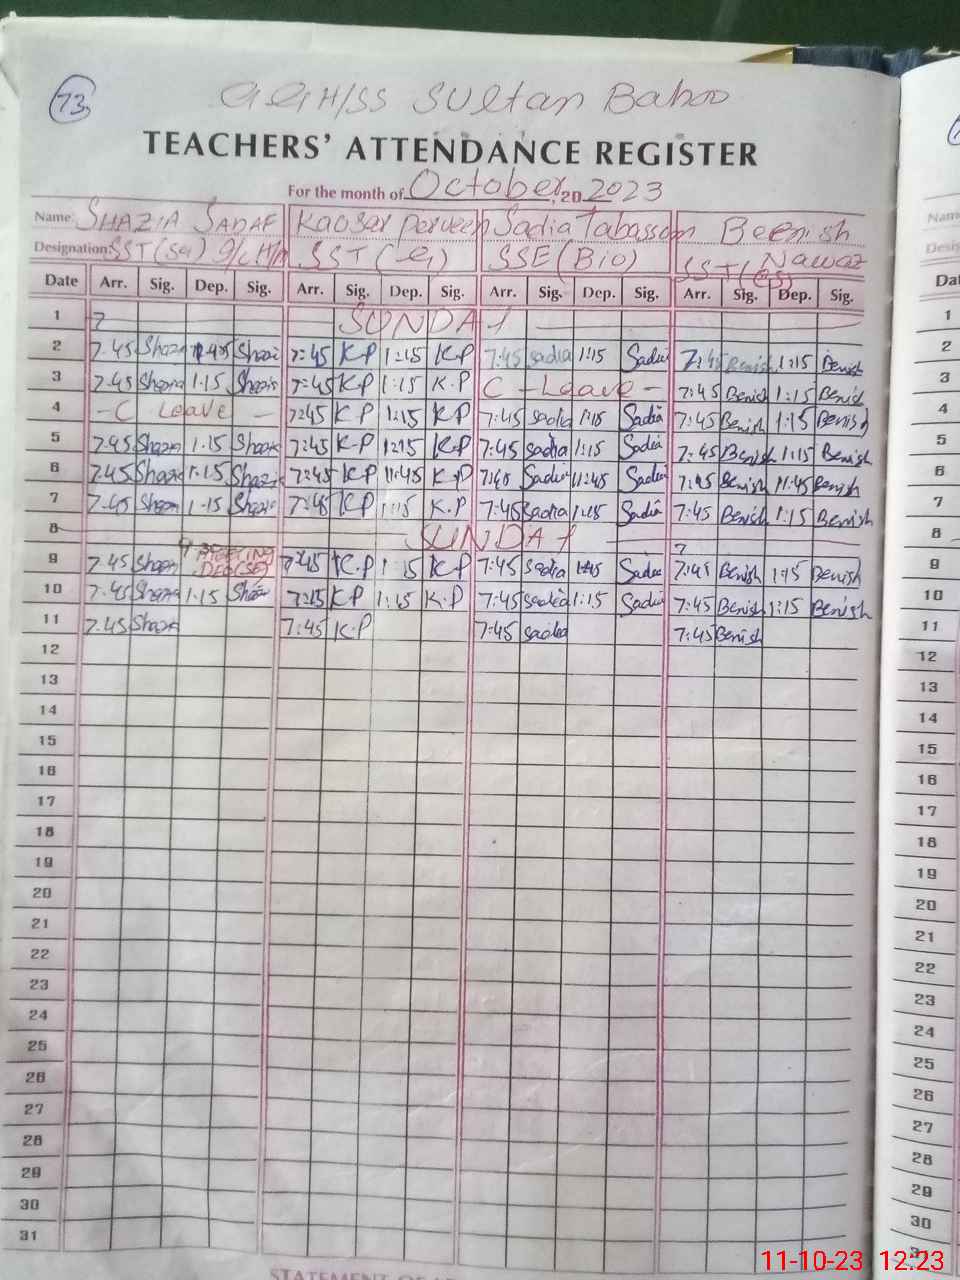 73
GGH/SS Sultan Bahoo
TEACHERS' ATTENDANCE REGISTER
For the month of October, 20 2023
Name: SHAZIA SADAF Kaosar Perveen Sadia Tabassum Beenish
Designation: SST (Sci) SST ( SSE (Bio) SST( Nawaz
Date Arr. Sig. Dep. Sig. Arr. Sig. Dep. Sig. Arr. Sig. Dep. Sig. Arr. Sig. Dep. Sig.
1 SUNDAY
2 7.45 Shazia Shazi 7:45 K.P 1:15 K.P 7:45 sadia 1:15 Sadia 7:45 Benish 1:15 Benish
3 7.45 Shazia 1.15 Shazia 7:45 K.P 1:15 K.P C - Leave - 7:45 Benish 1:15 Benish
4 - C Leave - 7:45 K.P 1:15 K.P 7:45 sadia 1:15 Sadia 7:45 Benish 1:15 Benish
5 7.45 Shazia 1.15 Shazia 7:45 K.P 1:15 K.P 7:45 sadia 1:15 Sadia 7:45 Benish 1:15 Benish
6 7.45 Shazia 1.15 Shazia 7:45 K.P 11:45 K.P 7:45 Sadia 11:45 Sadia 7:45 Benish 11:45 Benish
7 7.45 Shazia 1.15 Shazia 7:45 K.P 1:15 K.P 7:45 Sadia 1:15 Sadia 7:45 Benish 1:15 Benish
8 SUNDAY
9 7.45 Shazia MEETING 7:45 K.P 1:15 K.P 7:45 Sadia Sadia 7:45 Benish 1:15 Benish
10 7.45 Shazia 1.15 Shazia K.P 1:15 K.P 7:45 sadia 1:15 Sadia 7:45 Benish 1:15 Benish
11 7.45 Shazia 7:45 K.P 7:45 sadia 7:45 Benish
12
13
14
15
16
17
18
19
20
21
22
23
24
25
26
27
28
29
30
31
STATEMENT OF
Name
Desig
Dat
1
2
3
4
5
6
7
8
9
10
11
12
13
14
15
16
17
18
19
20
21
22
23
24
25
26
27
28
29
30
11-10-23 12.23